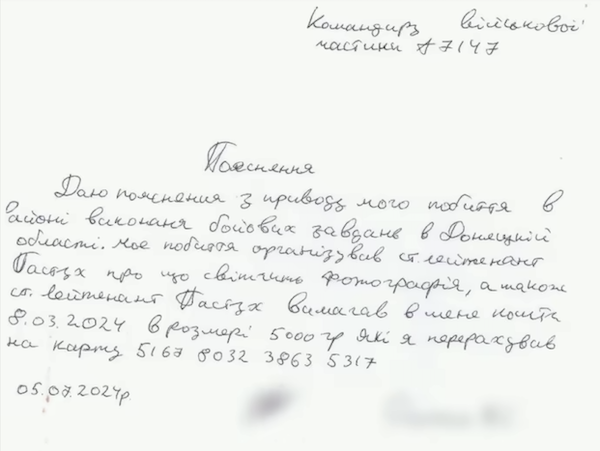 Командиру військової
частини А7147
Пояснення
Даю пояснення з приводу мого побиття в
районі виконаня бойових завдань в Донецькій
області. Моє побиття організував ст. лейтенант
Пастух про що свідчить фотографія, а також
ст. лейтенант Пастух вимагав в мене кошти
8.03.2024 в розмері 5000 гр які я перерахував
на карту 5167 8032 3863 5317
05.07.2024р